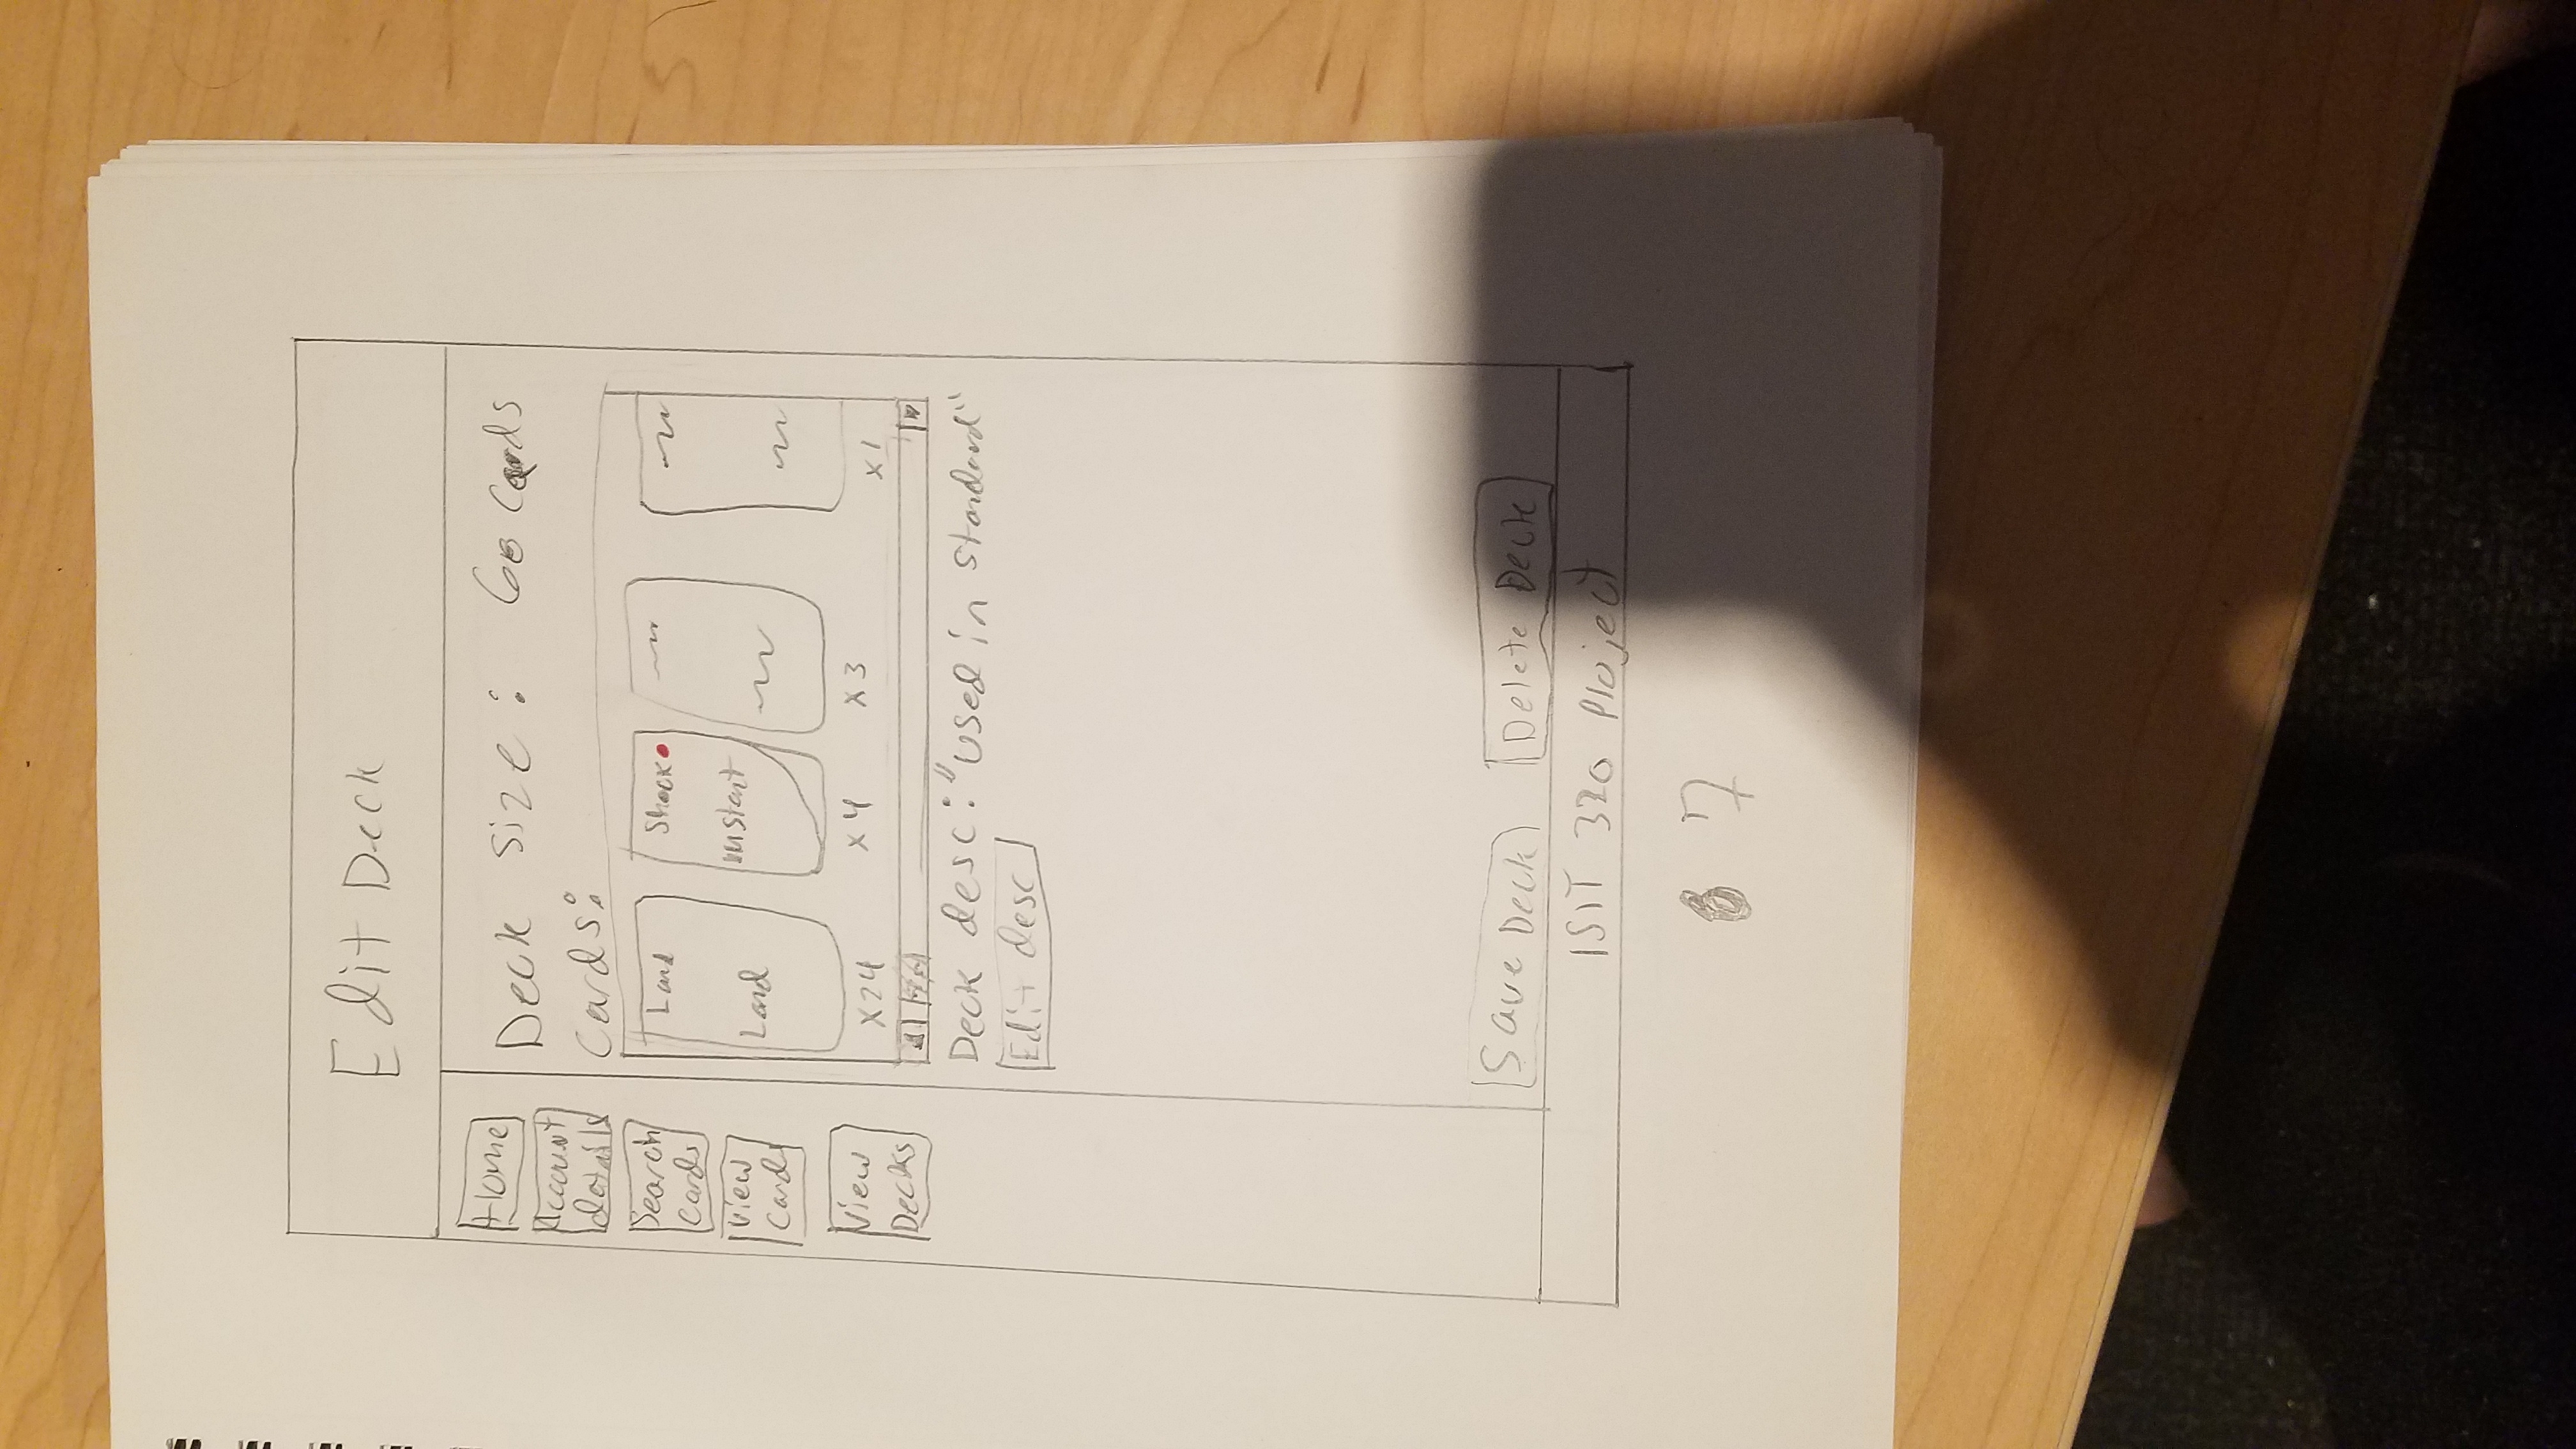 Edit Deck
Home
Account
details
Search
Cards
View
Cards
View
Decks
Deck size: 60 Cards
Cards:
Land
Land
x24
Shock
instant
x4
x3
x1
Deck desc: "used in standard"
Edit desc
Save Deck
Delete Deck
ISIT 320 Project
7